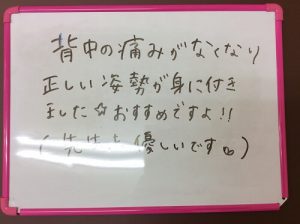 背中の痛みがなくなり
正しい姿勢が身に付き
ました☆おすすめですよ!!
(先生も優しいです♡)